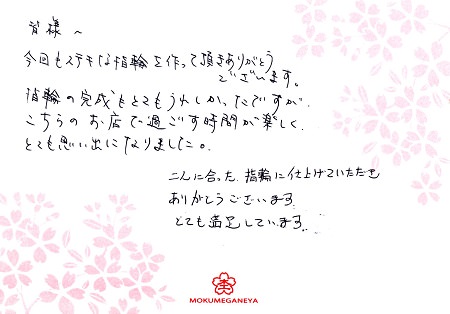 皆様へ
今回もステキな指輪を作って頂きありがとう
ございます。
指輪の完成もとてもうれしかったですが、
こちらのお店で過ごす時間が楽しく、
とても思い出になりました。
二人に合った指輪に仕上げていただき
ありがとうございます。
とても満足しています。
MOKUMEGANEYA